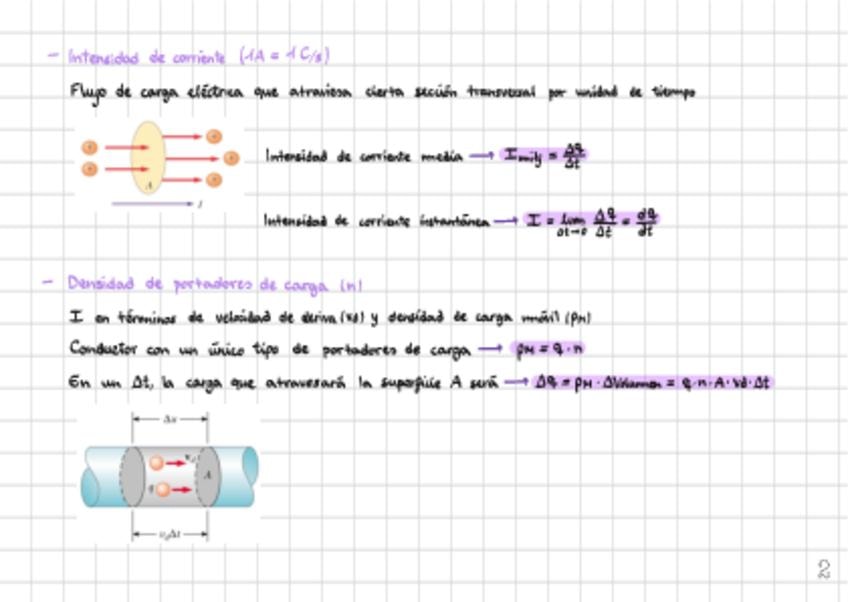 - Intensidad de corriente (1A = 1 C/s)
Flujo de carga eléctrica que atraviesa cierta sección transversal por unidad de tiempo
A
I
Intensidad de corriente media → I = Δq/Δt
Intensidad de corriente instantánea → I = lim Δt→0 Δq/Δt = dq/dt
- Densidad de portadores de carga (n)
I en términos de velocidad de deriva (vd) y densidad de carga móvil (ρM)
Conductor con un único tipo de portadores de carga → ρM = q · n
En un Δt, la carga que atravesará la superficie A será → Δq = ρM · ΔVolumen = q·n·A·vd·Δt
Δx
vd
A
q
vdΔt
2